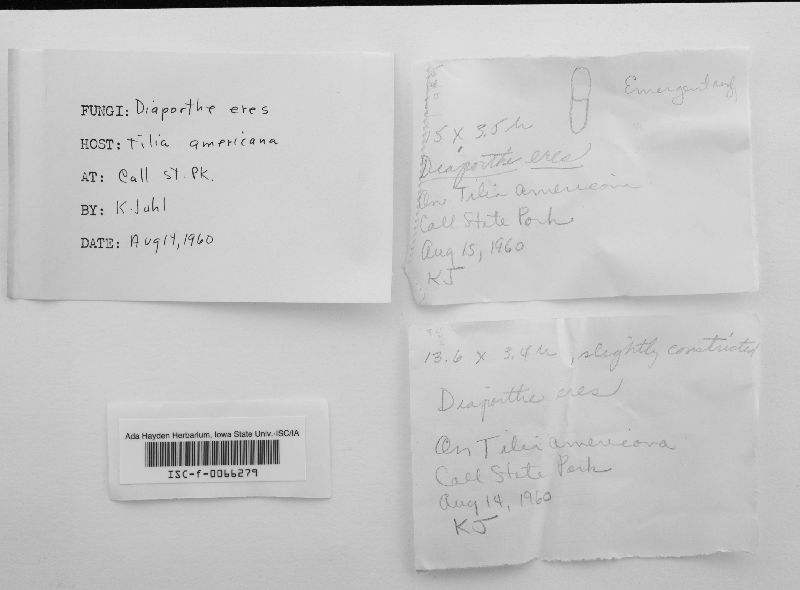 FUNGI: Diaporthe eres
HOST: Tilia americana
AT: Call St. Pk.
BY: K. Juhl
DATE: Aug 14, 1960
Emergent
5 X 3.5 µ
Diaporthe eres
On Tilia americana
Call State Park
Aug 15, 1960
KJ
13.6 X 3.4 µ, slightly constricted
Diaporthe eres
On Tilia americana
Call State Park
Aug 14, 1960
KJ
Ada Hayden Herbarium, Iowa State Univ.-ISC/IA
ISC-f-0066279